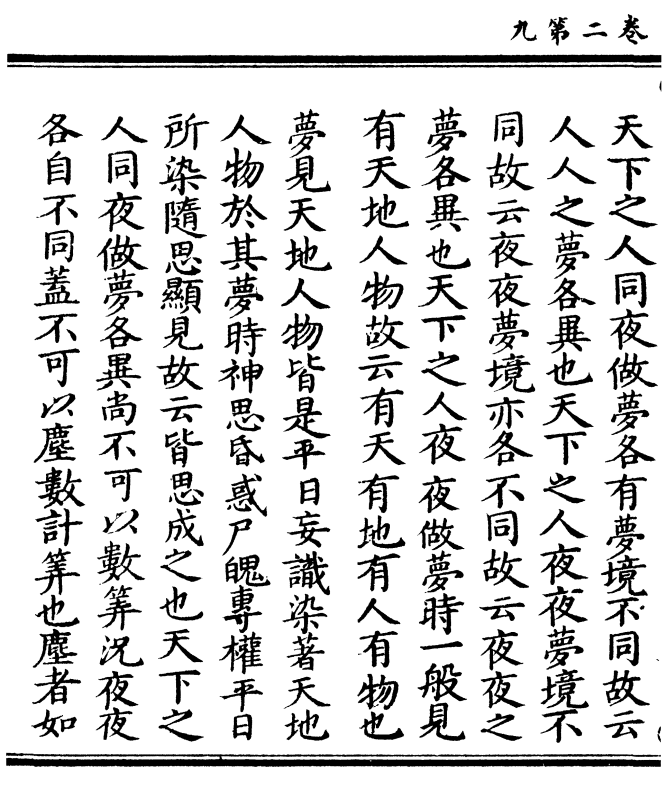 卷二第九
天下之人同夜做夢各有夢境不同故云
人人之夢各異也天下之人夜夜夢境不
同故云夜夜夢境亦各不同故云夜夜之
夢各異也天下之人夜夜做夢時一般見
有天地人物故云有天有地有人有物也
夢見天地人物皆是平日妄識染著天地
人物於其夢時神思昏惑尸魄專權平日
所染隨思顯見故云皆思成之也天下之
人同夜做夢各異尚不可以數筭況夜夜
各自不同蓋不可以塵數計筭也塵者如